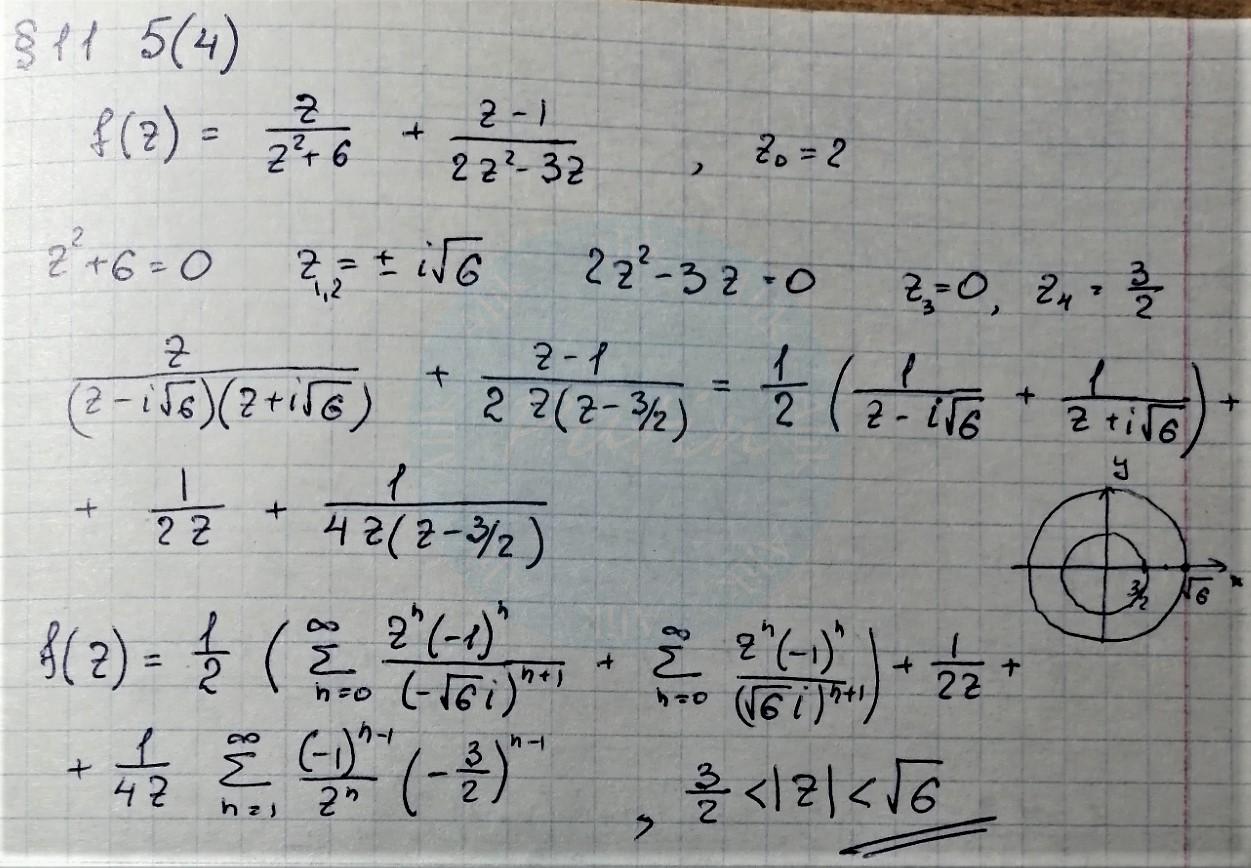 §11 5(4)
f(z) = z/(z²+6) + (z-1)/(2z²-3z) , z₀ = 2
z²+6=0 z₁,₂ = ± i√6 2z²-3z=0 z₃=0, z₄ = 3/2
z/((z-i√6)(z+i√6)) + (z-1)/(2z(z-3/2)) = 1/2 (1/(z-i√6) + 1/(z+i√6)) +
+ 1/(2z) + 1/(4z(z-3/2))
y
3/2 √6 x
f(z) = 1/2 (∑_{n=0}^{∞} zⁿ(-1)ⁿ/(-√6 i)ⁿ⁺¹ + ∑_{n=0}^{∞} zⁿ(-1)ⁿ/(√6 i)ⁿ⁺¹) + 1/(2z) +
+ 1/(4z) ∑_{n=1}^{∞} (-1)ⁿ⁻¹/zⁿ (-3/2)ⁿ⁻¹ , 3/2 < |z| < √6